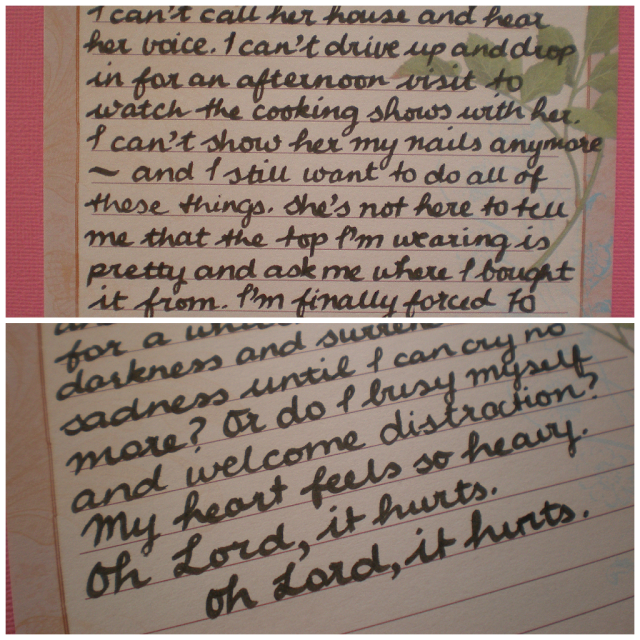 I can't call her house and hear
her voice. I can't drive up and drop
in for an afternoon visit to
watch the cooking shows with her.
I can't show her my nails anymore
~ and I still want to do all of
these things. She's not here to tell
me that the top I'm wearing is
pretty and ask me where I bought
it from. I'm finally forced to
for a
darkness and
sadness until I can cry no
more? Or do I busy myself
and welcome distraction?
My heart feels so heavy.
Oh Lord, it hurts.
Oh Lord, it hurts.